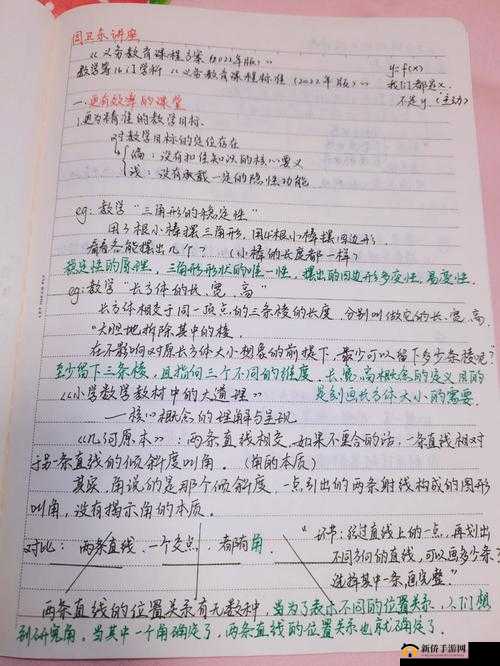 周卫东讲座
《义务教育课程方案(2022年版)》
数学等16门学科《义务教育课程标准(2022年版)》
y=f(x)
我们都是x,
不是y.(主动)
一.更有效率的课堂
1.更为精准的教学目标
对教学目标的定位存在
偏:没有扣住知识的核心要义
浅:没有承载一定的隐性功能
eg:教学"三角形的稳定性"
用3根小棒摆三角形,用4根小棒摆四边形,
看看各能摆出几个?(小棒的长度都一样)
稳定性的原理,三角形形状的唯一性,摆出的四边形多变性,易变性.
eg:教学"长方体的长、宽、高"
长方体相交于同一顶点的三条棱的长度,分别叫做它的长、宽、高.
"大胆地拆除其中的棱.
在不影响对原长方体大小想象的前提下,最少可以留下多少条棱呢?"
至少留下三条棱,且指向三个不同的维度.长宽高概念的定义目的
是刻画长方体大小的需要.
《小学数学教材中的大道理》
——核心概念的理解与呈现
《几何原本》:两条直线相交,如果不重合的话,一条直线相对
于另一条直线的倾斜度叫角.(角的本质)
其实,角说的是那个倾斜度,一点引出的两条射线构成的图形
叫角,没有揭示角的本质.
对比:两条直线,一个交点,都有角
"环节:经过直线上的一点,再划出
不同方向的直线,可以画多少条?
选择其中一条,画完整."
两条直线的位置关系有无数种,当为了表示不同的位置关系,人们想
到研究角,当其中一个角确定了,两条直线的位置关系也就确定了.
新侨手游网